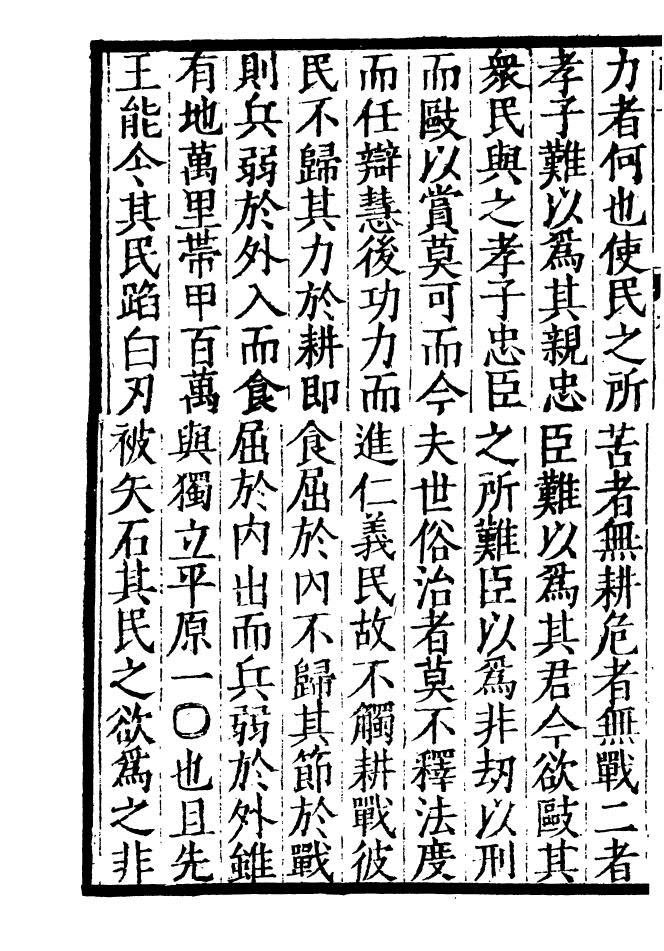 力者何也使民之所苦者無耕危者無戰二者
孝子難以爲其親忠臣難以爲其君今欲敺其
衆民與之孝子忠臣之所難臣以爲非劫以刑
而敺以賞莫可而今夫世俗治者莫不釋法度
而任辯慧後功力而進仁義民故不觸耕戰彼
民不歸其力於耕即食屈於內不歸其節於戰
則兵弱於外入而食屈於内出而兵弱於外雖
有地萬里帶甲百萬與獨立平原一〇也且先
王能令其民蹈白刃被矢石其民之欲爲之非